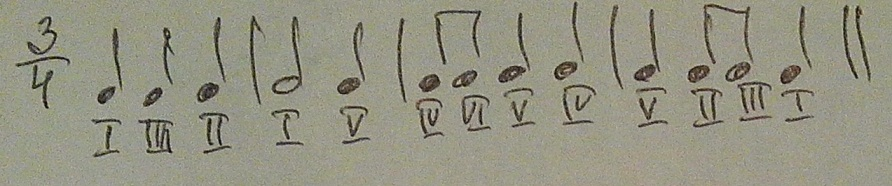 3
4
I III II I V IV VI V IV V II III I